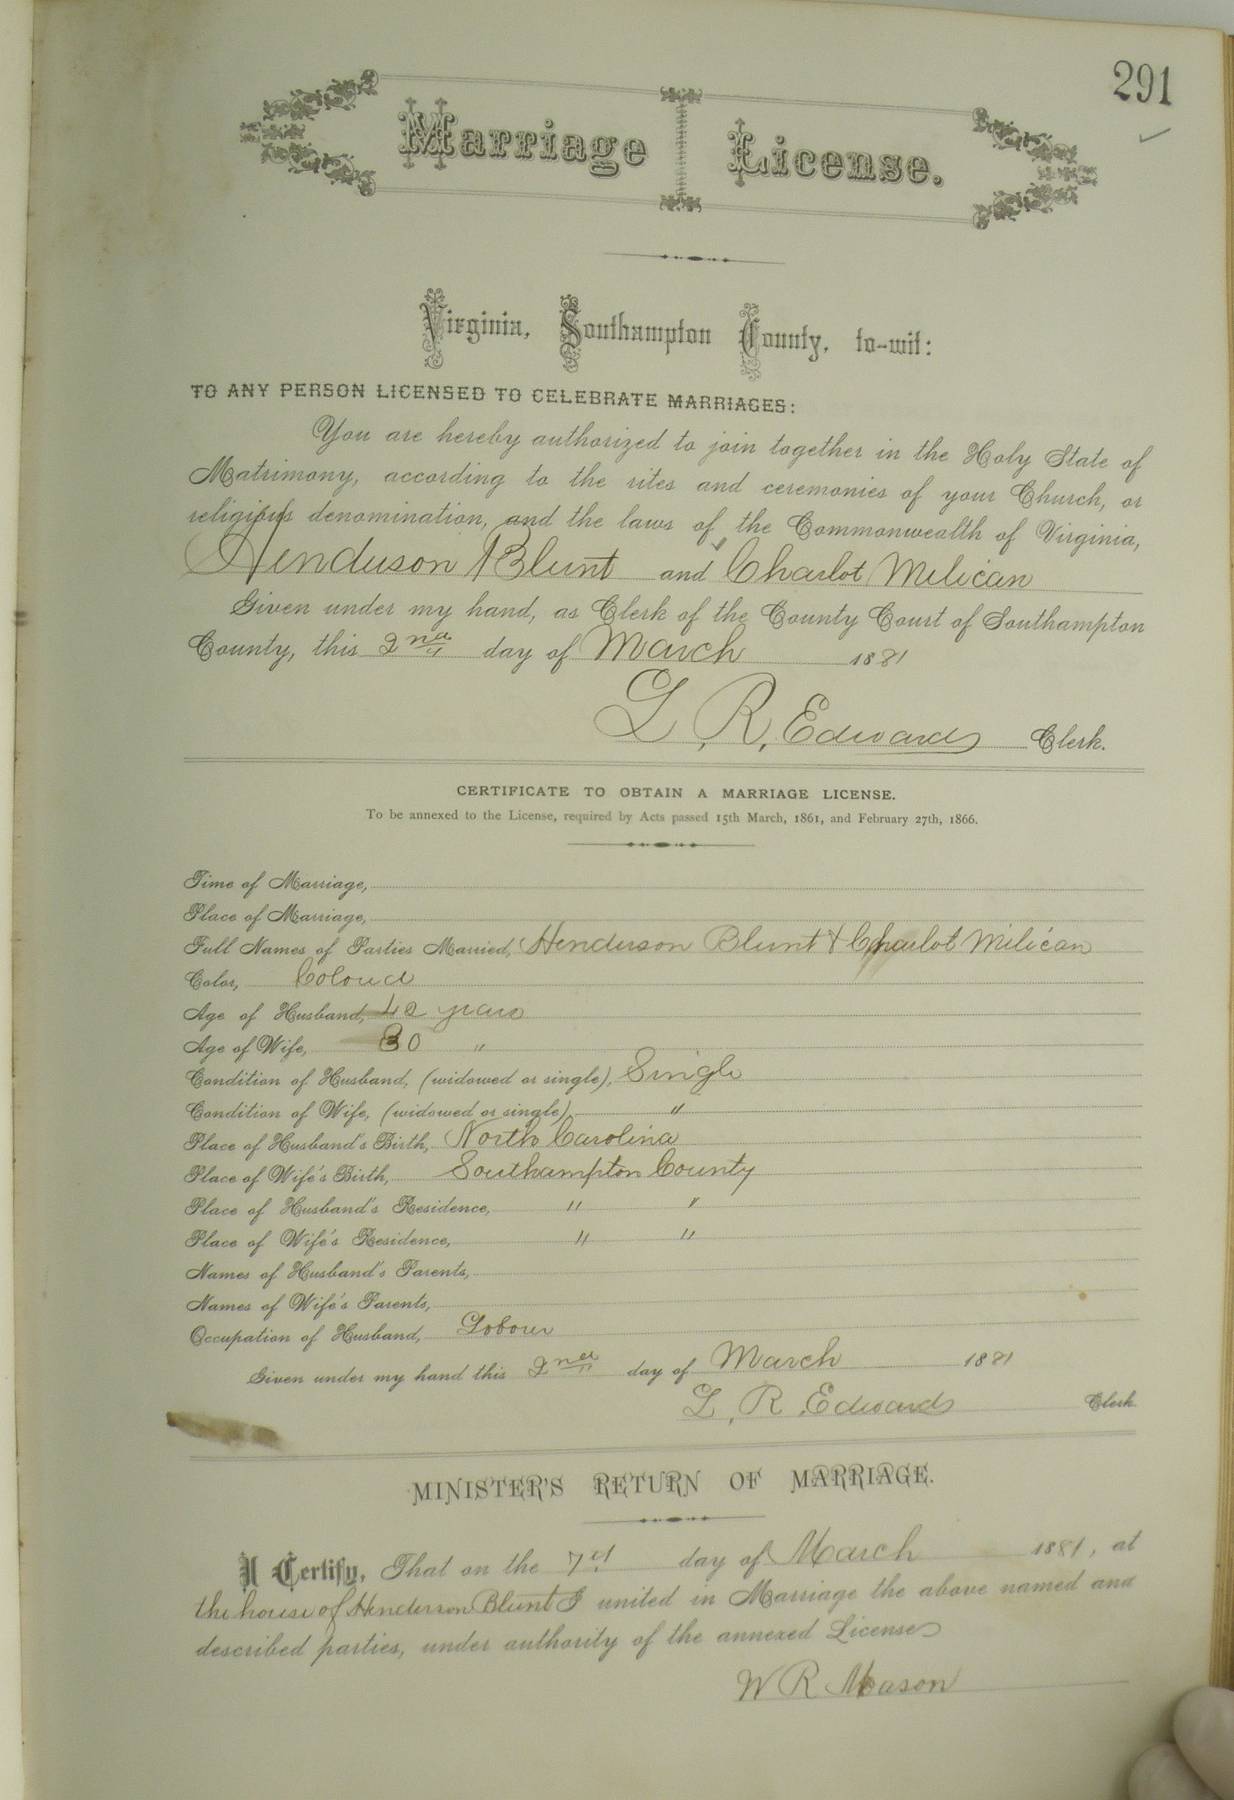 291
Marriage License.
Virginia, Southampton County, to-wit:
TO ANY PERSON LICENSED TO CELEBRATE MARRIAGES:
You are hereby authorized to join together in the Holy State of
Matrimony, according to the rites and ceremonies of your Church, or
religious denomination, and the laws of the Commonwealth of Virginia,
Henderson Blunt and Charlot Milican
Given under my hand, as Clerk of the County Court of Southampton
County, this 2nd day of March 1881
L. R. Edwards Clerk.
CERTIFICATE TO OBTAIN A MARRIAGE LICENSE.
To be annexed to the License, required by Acts passed 15th March, 1861, and February 27th, 1866.
Time of Marriage,
Place of Marriage,
Full Names of Parties Married, Henderson Blunt & Charlot Milican
Color, Colored
Age of Husband, 42 years
Age of Wife, 30 "
Condition of Husband, (widowed or single), Single
Condition of Wife, (widowed or single), "
Place of Husband's Birth, North Carolina
Place of Wife's Birth, Southampton County
Place of Husband's Residence, " "
Place of Wife's Residence, " "
Names of Husband's Parents,
Names of Wife's Parents,
Occupation of Husband, Laborer
Given under my hand this 2nd day of March 1881
L. R. Edwards Clerk
MINISTER'S RETURN OF MARRIAGE.
I Certify, That on the 7 day of March 1881, at
the house of Henderson Blunt I united in Marriage the above named and
described parties, under authority of the annexed License
W R Mason